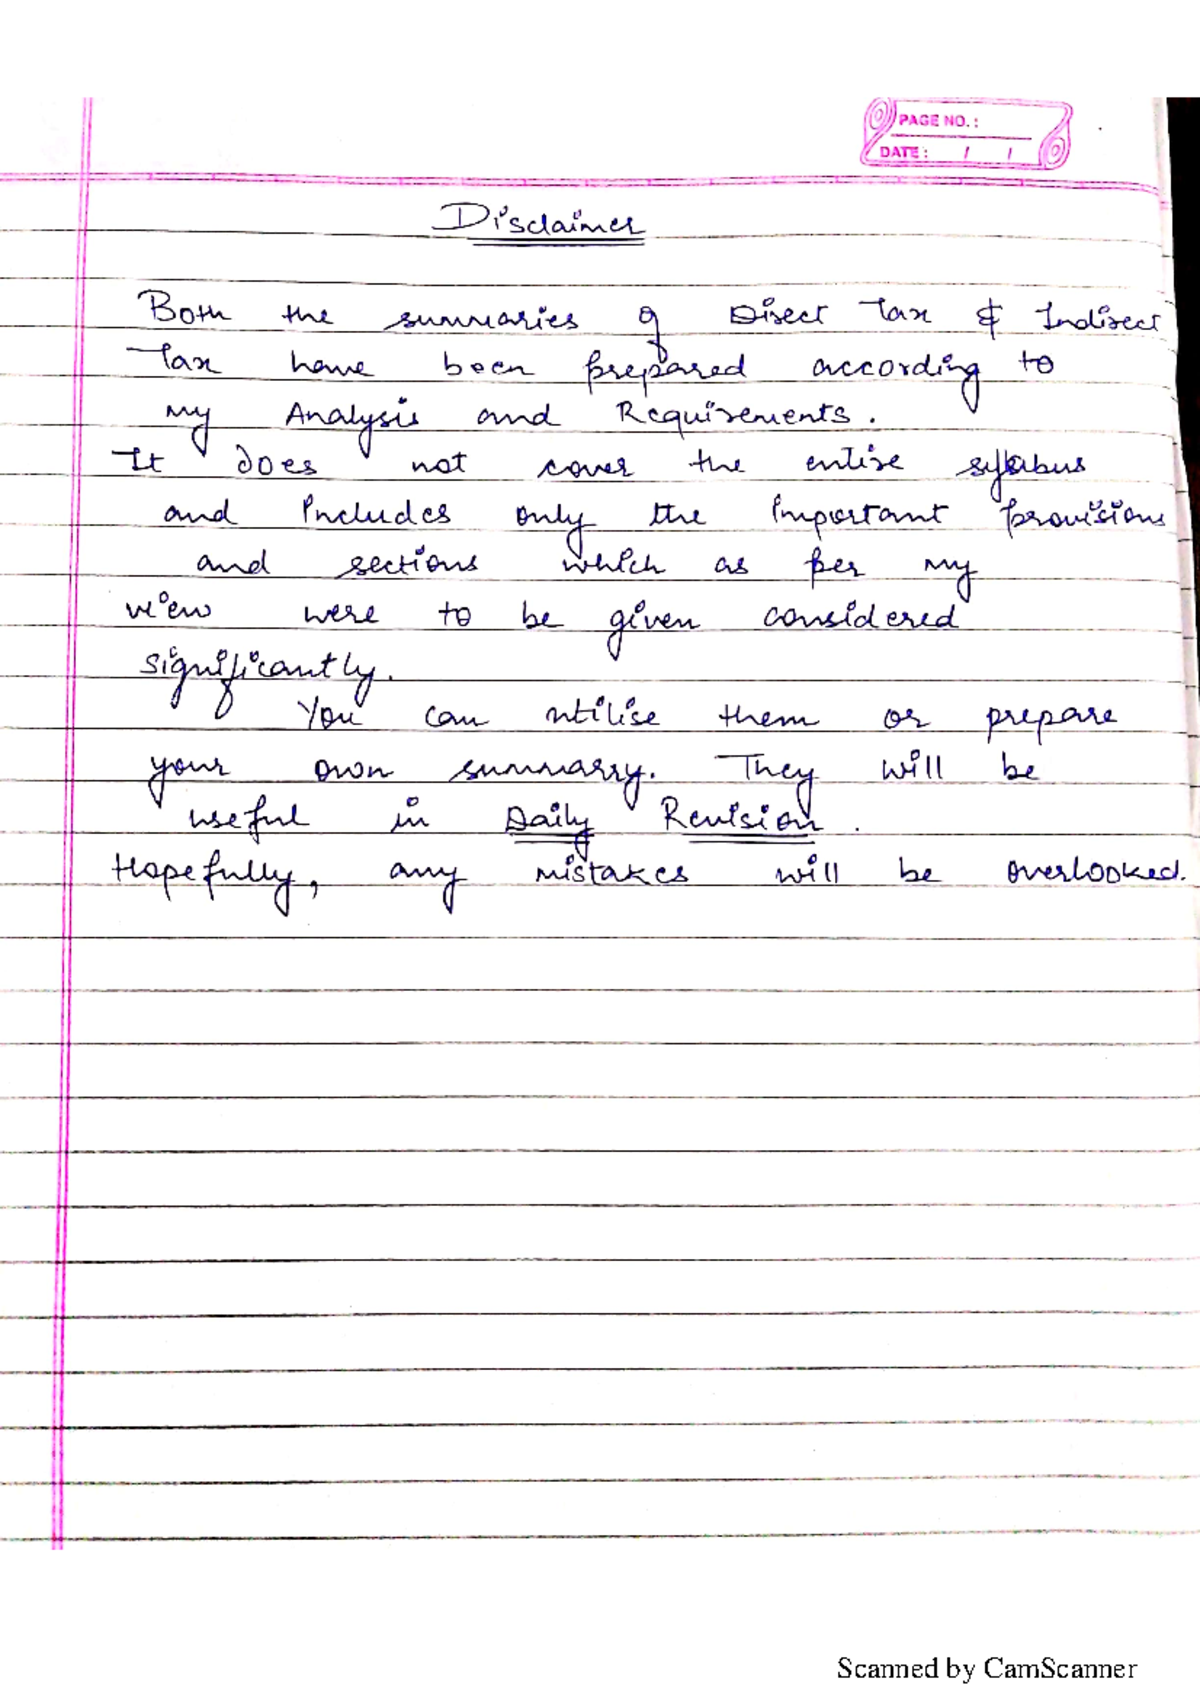 PAGE NO. :
DATE : / /
Disclaimer
Both the summaries of Direct Tax & Indirect
Tax have been prepared according to
my Analysis and Requirements.
It does not cover the entire syllabus
and includes only the important provisions
and sections which as per my
view were to be given considered
significantly.
You can utilise them or prepare
your own summarry. They will be
useful in Daily Revision.
Hopefully, any mistakes will be overlooked.
Scanned by CamScanner